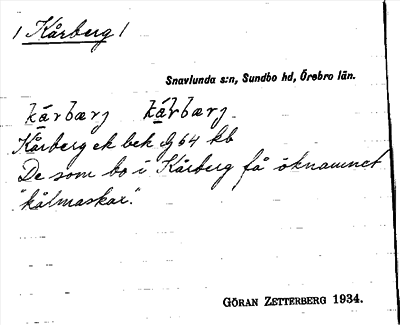 / Kårberg /
Snavlunda s:n, Sundbo hd, Örebro län.
kårbærj kårbærj.
Kårberg ek bek dg 64 kb
De som bo i Kårberg få öknamnet
"kålmaskar".
GÖRAN ZETTERBERG 1934.